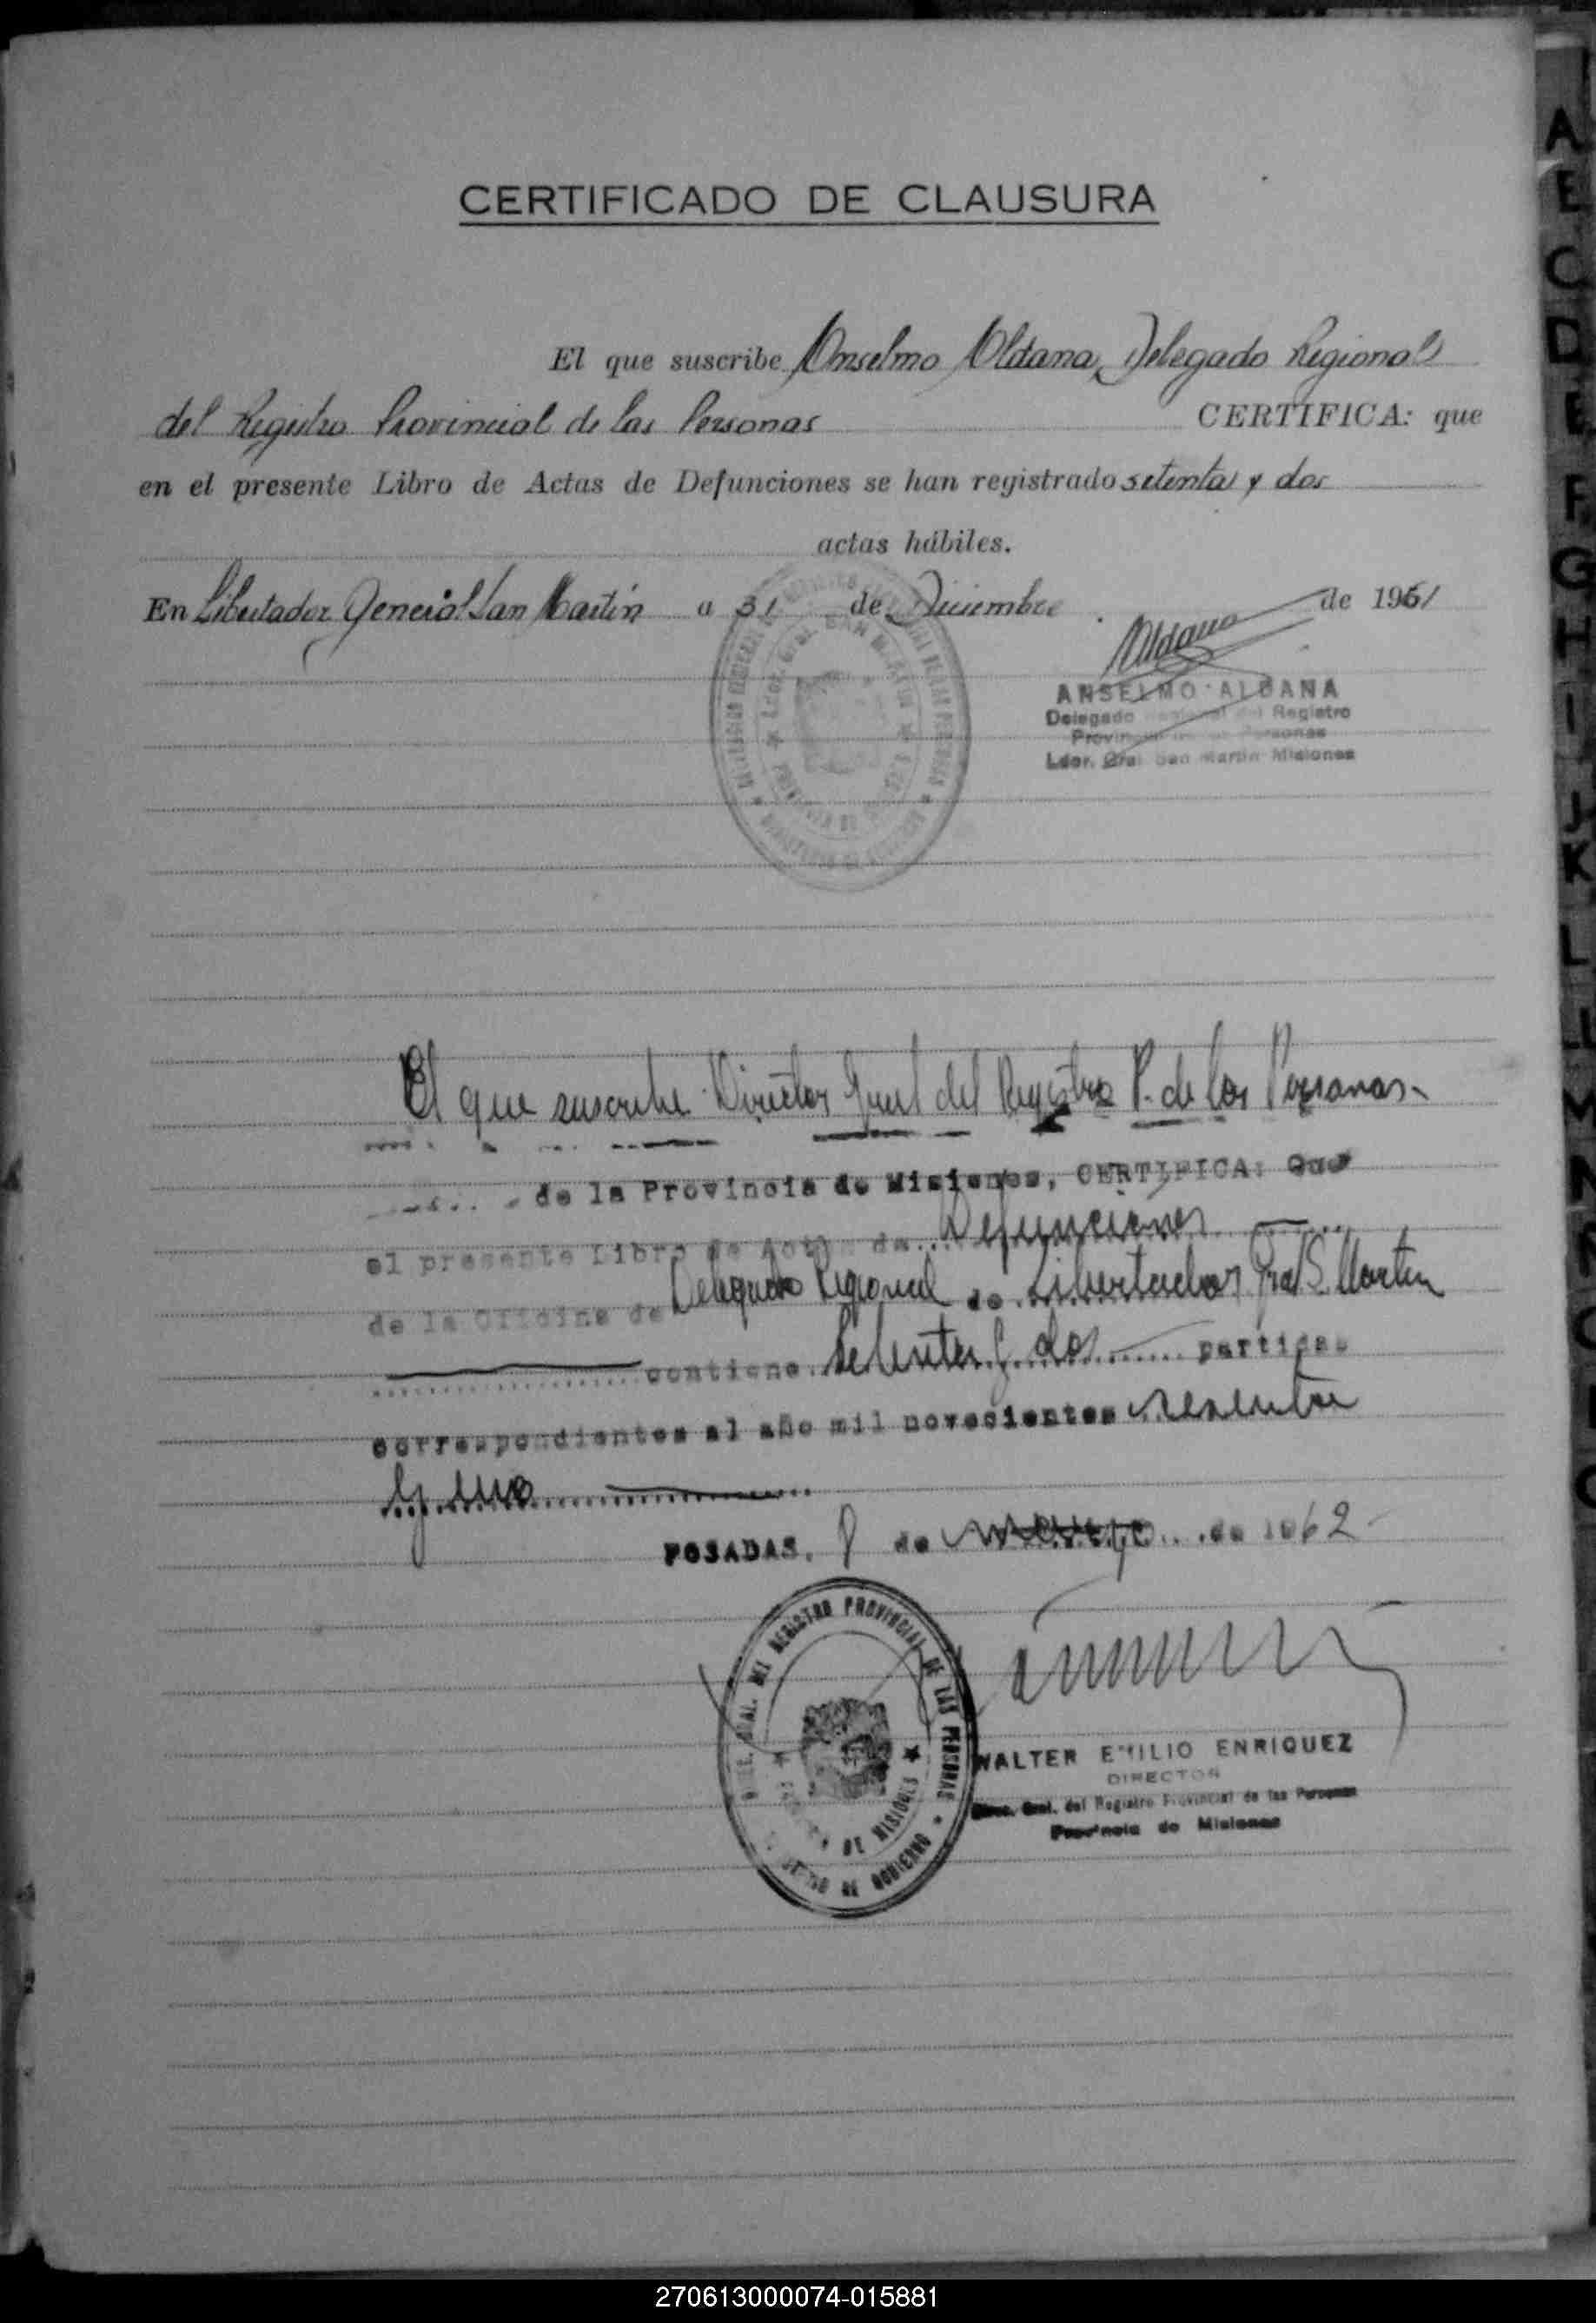 CERTIFICADO DE CLAUSURA
El que suscribe Anselmo Aldana, Delegado Regional
del Registro Provincial de las Personas CERTIFICA: que
en el presente Libro de Actas de Defunciones se han registrado setenta y dos
actas hábiles.
En Libertador General San Martín a 31 de Diciembre de 1961
Aldana
ANSELMO ALDANA
Delegado Regional del Registro
Provincial de las Personas
Ldor. Gral San Martin Misiones
El que suscribe Director Gral del Registro P. de las Personas.-
de la Provincia de Misiones, CERTIFICA: Que
el presente Libro de Actas de Defunciones
de la Oficina de Delegado Regional de Libertador Gral S. Martin
contiene Setenta y dos partidas
correspondientes al año mil novecientos sesenta
y uno
POSADAS, 8 de de 1962-
REGISTRO PROVINCIAL DE LAS PERSONAS
DE MISIONES
DE GOBIERNO
WALTER EMILIO ENRIQUEZ
DIRECTOR
Direc. Gral. del Registro Provincial de las Personas
Provincia de Misiones
A
E
C
D
E
F
G
H
I
J
K
L
LL
M
N
270613000074-015881